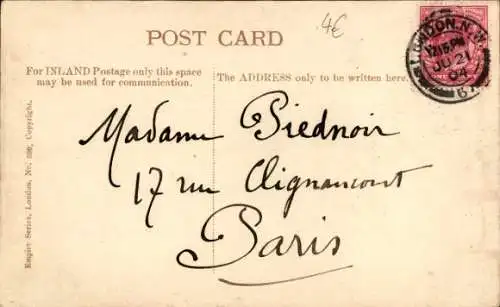 4€
POST CARD
For INLAND Postage only this space
may be used for communication.
The ADDRESS only to be written here.
LONDON. N.W.
12.15 PM
JU 21
04
Madame Piednoir
17 rue Clignancourt
Paris
Empire Series, London, No. Copyright.